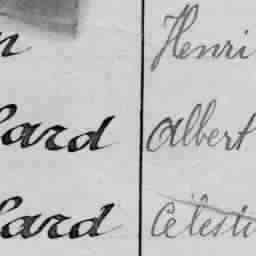 n Henri
lard Albert
lard Célesti